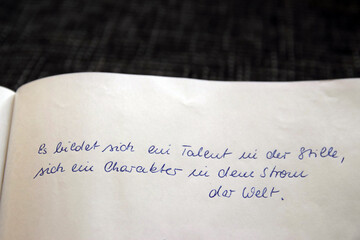 Es bildet sich ein Talent in der Stille,
sich ein Charakter in dem Strom
der Welt.